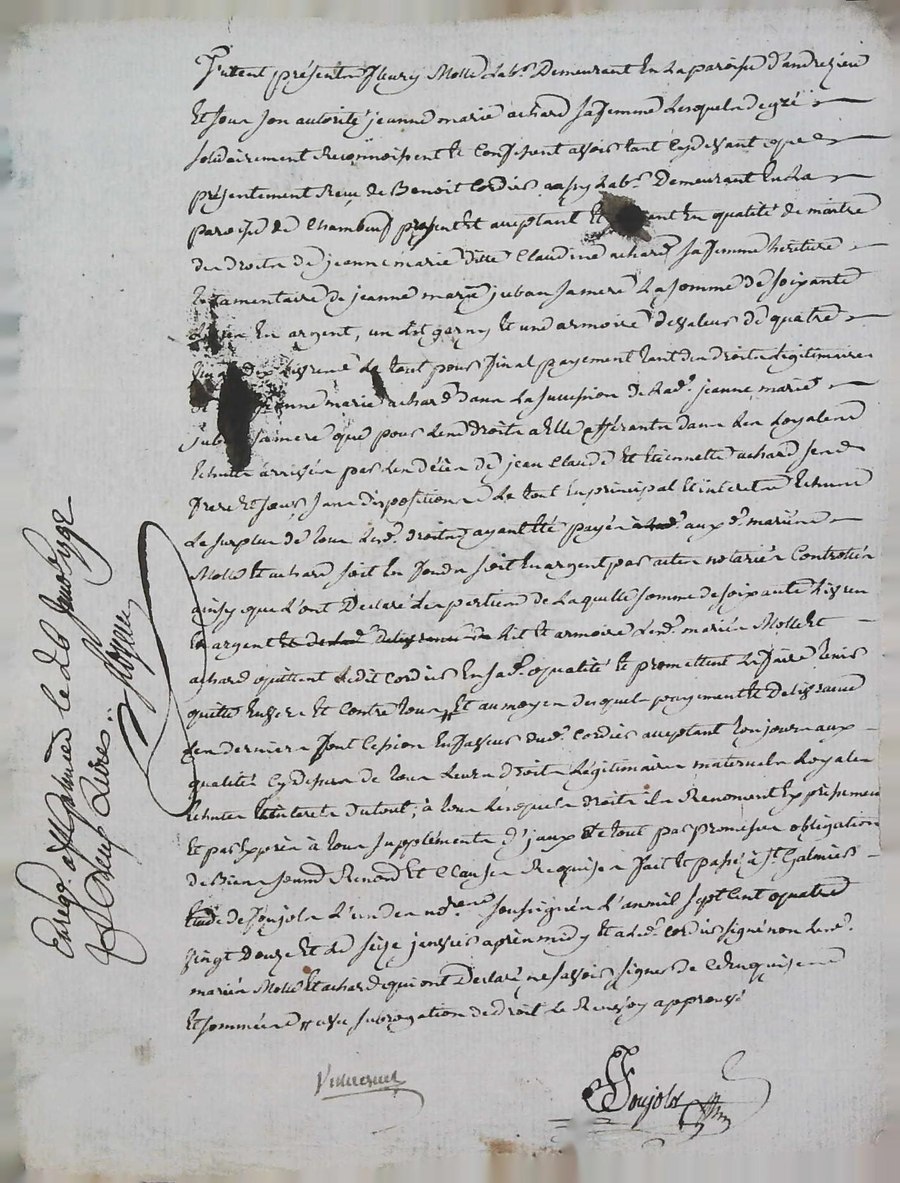 furent présents fleury Molle Labr. Demeurant En La paroisse d'andrezieu
Et sous son autorité jeanne marie achard sa femme Lesquels de gré
solidairement Reconnoissent et Confessent avoir tant cy devant que
présentement Reçu de Benoit Cordier Labr. Demeurant En La
paroisse de Chambeuf présent Et acceptant Et En qualité de maitre
des droits de jeanne marie ditte Claudine achard sa femme héritiere
testamentaire de jeanne marie juban sa mere La somme de soixante
En argent, un Lit garny Et une armoire de valeur de quatre
Le tout pour final payement tant des droits Légitimaires
marie achard dans La succession de Lad. jeanne marie
sa mere que pour Les droits a Elle afférants dans Les Loyales
Echutes arrivées par Les décès de jean Claude Et Etiennette achard ses
frere Et soeur, sans disposition Le tout En principal Et interets Echus
Le surplus de tous Lesd. droits ayant Eté payés aux d. mariés
Molle Et achard soit En fonds soit En argent par actes notariés Controllés
ainsy que L'ont Déclaré Les parties de Laquelle somme de soixante Livres
En argent Lit Et armoire Lesd. mariés Molle Et
achard quittent Ledit Cordier En sad. qualité Et promettent Le faire tenir
quitte Envers Et Contre tous, Et au moyen desquels payement Et Delivrance
Ces derniers font Cession En faveur dud. Cordier acceptant toujours aux
qualités Cy dessus de tous Leurs droits Légitimaires maternels Loyales
Echutes Et interets du tout; à tous Lesquels droits ils Renoncent Expressément
Et par Exprès à tous suppléments d'jceux Le tout par promesses obligation
de Biens soumd Renond Et Clauses Requises fait Et passé à St Galmier
Etude de foujols L'un des nores soussignés L'an mil sept Cent quatre
vingt Douze Et Le seize janvier après midy Et a Led. Cordier signé non Lesd.
mariés Molle Et achard qui ont Déclaré ne savoir signer de Ce Enquis
Et sommés subrogation de droit Le Renvoy approuvé
foujols
Enreg. a St Galmier le 26